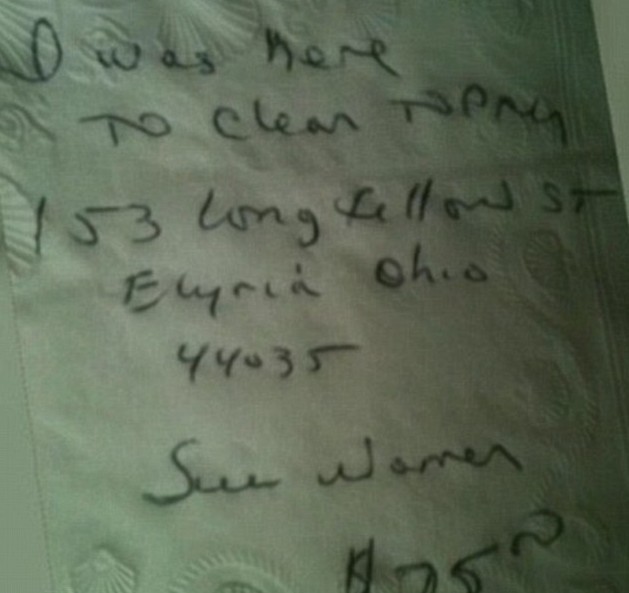 I was here
TO Clean TO PAy
153 Longfellow ST
Elyria Ohio
44035
Sue Warren
$75